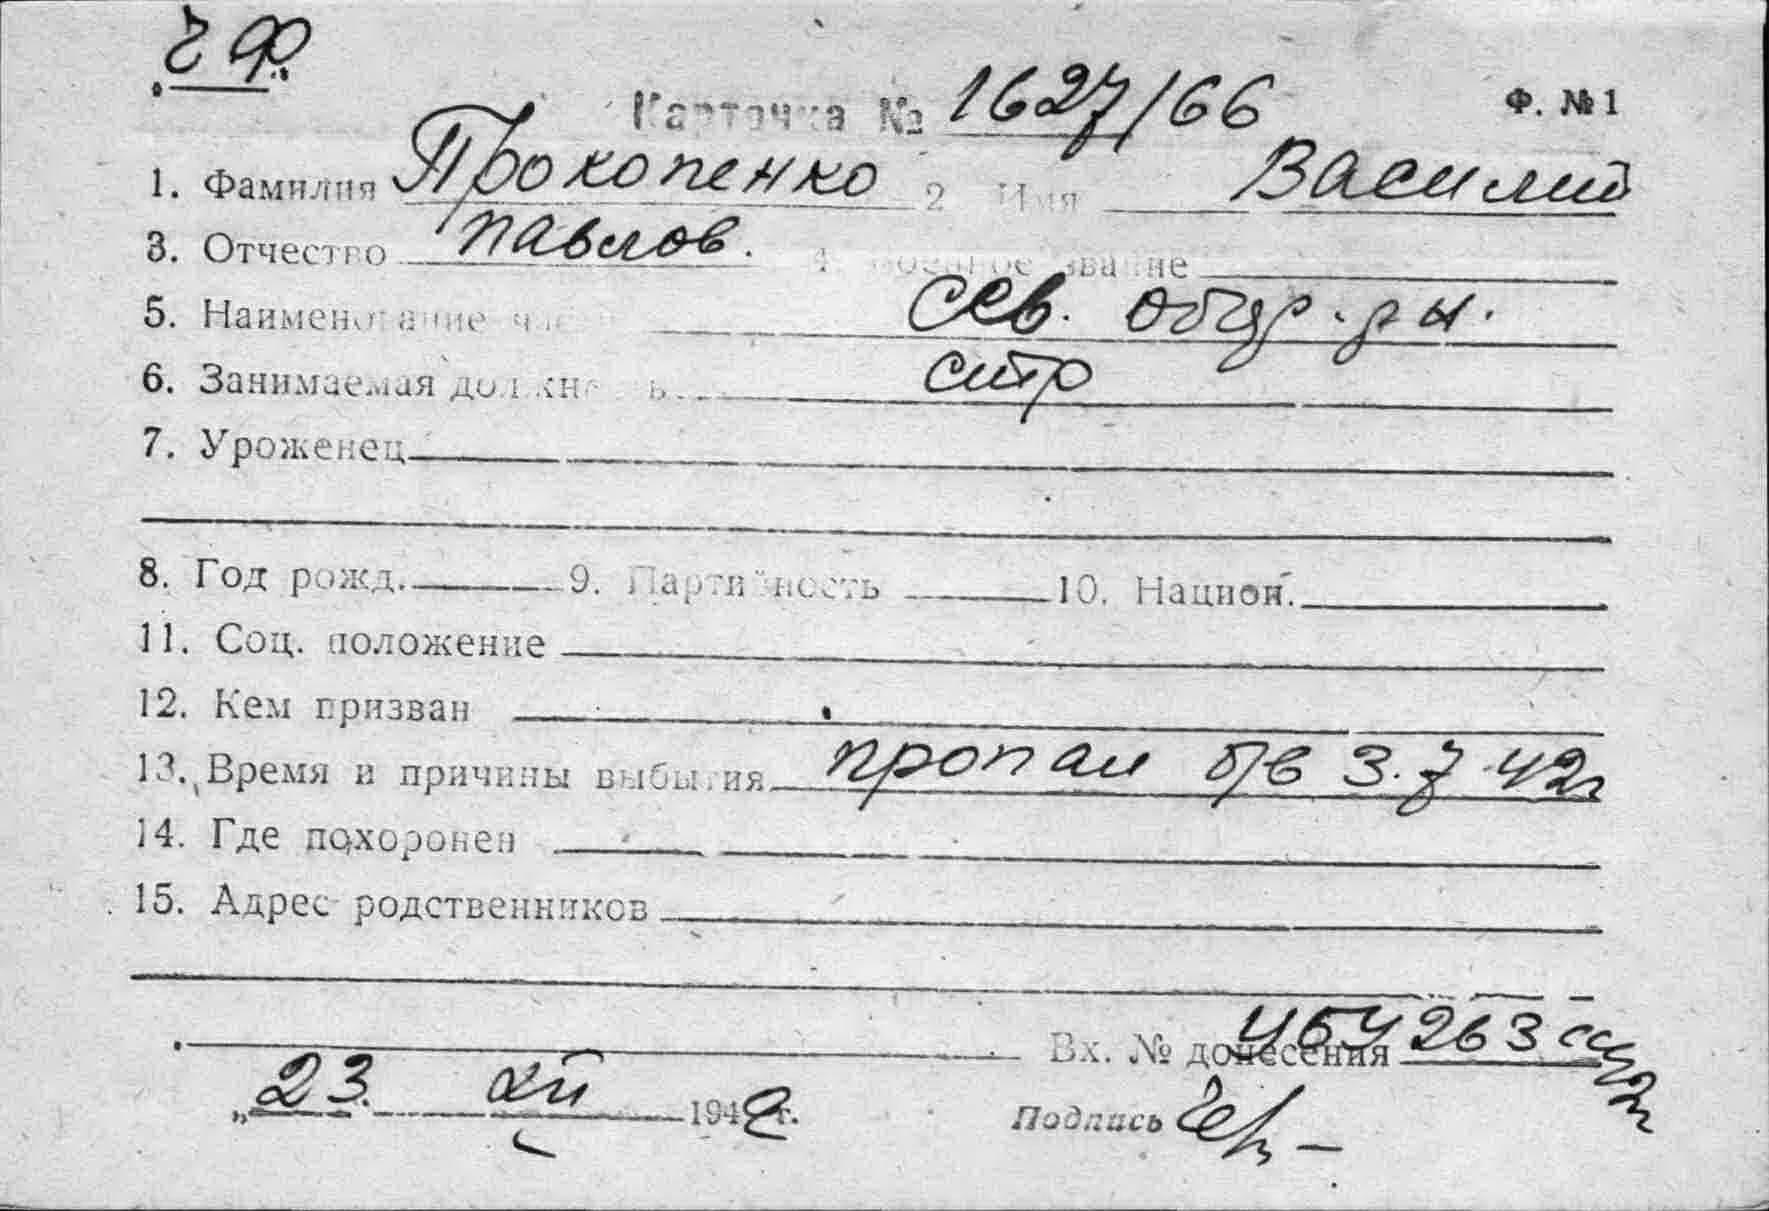 ЧФ.
Карточка № 1627/66 Ф. № 1
1. Фамилия Прокопенко 2 Имя Василий
3. Отчество Павлов. 4. Военное звание
5. Наименование час Сев. обор. р-н.
6. Занимаемая должность стр
7. Уроженец
8. Год рожд. 9. Партийность 10. Национ.
11. Соц. положение
12. Кем призван
13. Время и причины выбытия пропал б/в 3.7.42г
14. Где похоронен
15. Адрес родственников
Вх. № донесения 454263
„23. XII 1942 г. Подпись